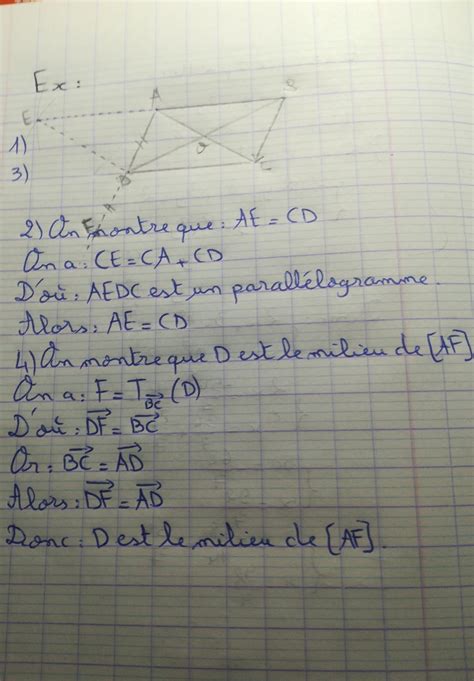 Ex:
E A B
1)
O
3) D C
F
2) On montre que: AE = CD
On a: CE = CA + CD
D'où: AEDC est un parallélogramme.
Alors: AE = CD
4) On montre que D est le milieu de [AF]
On a: F = T_BC⃗ (D)
D'où: DF⃗ = BC⃗
Or: BC⃗ = AD⃗
Alors: DF⃗ = AD⃗
Donc: D est le milieu de [AF].